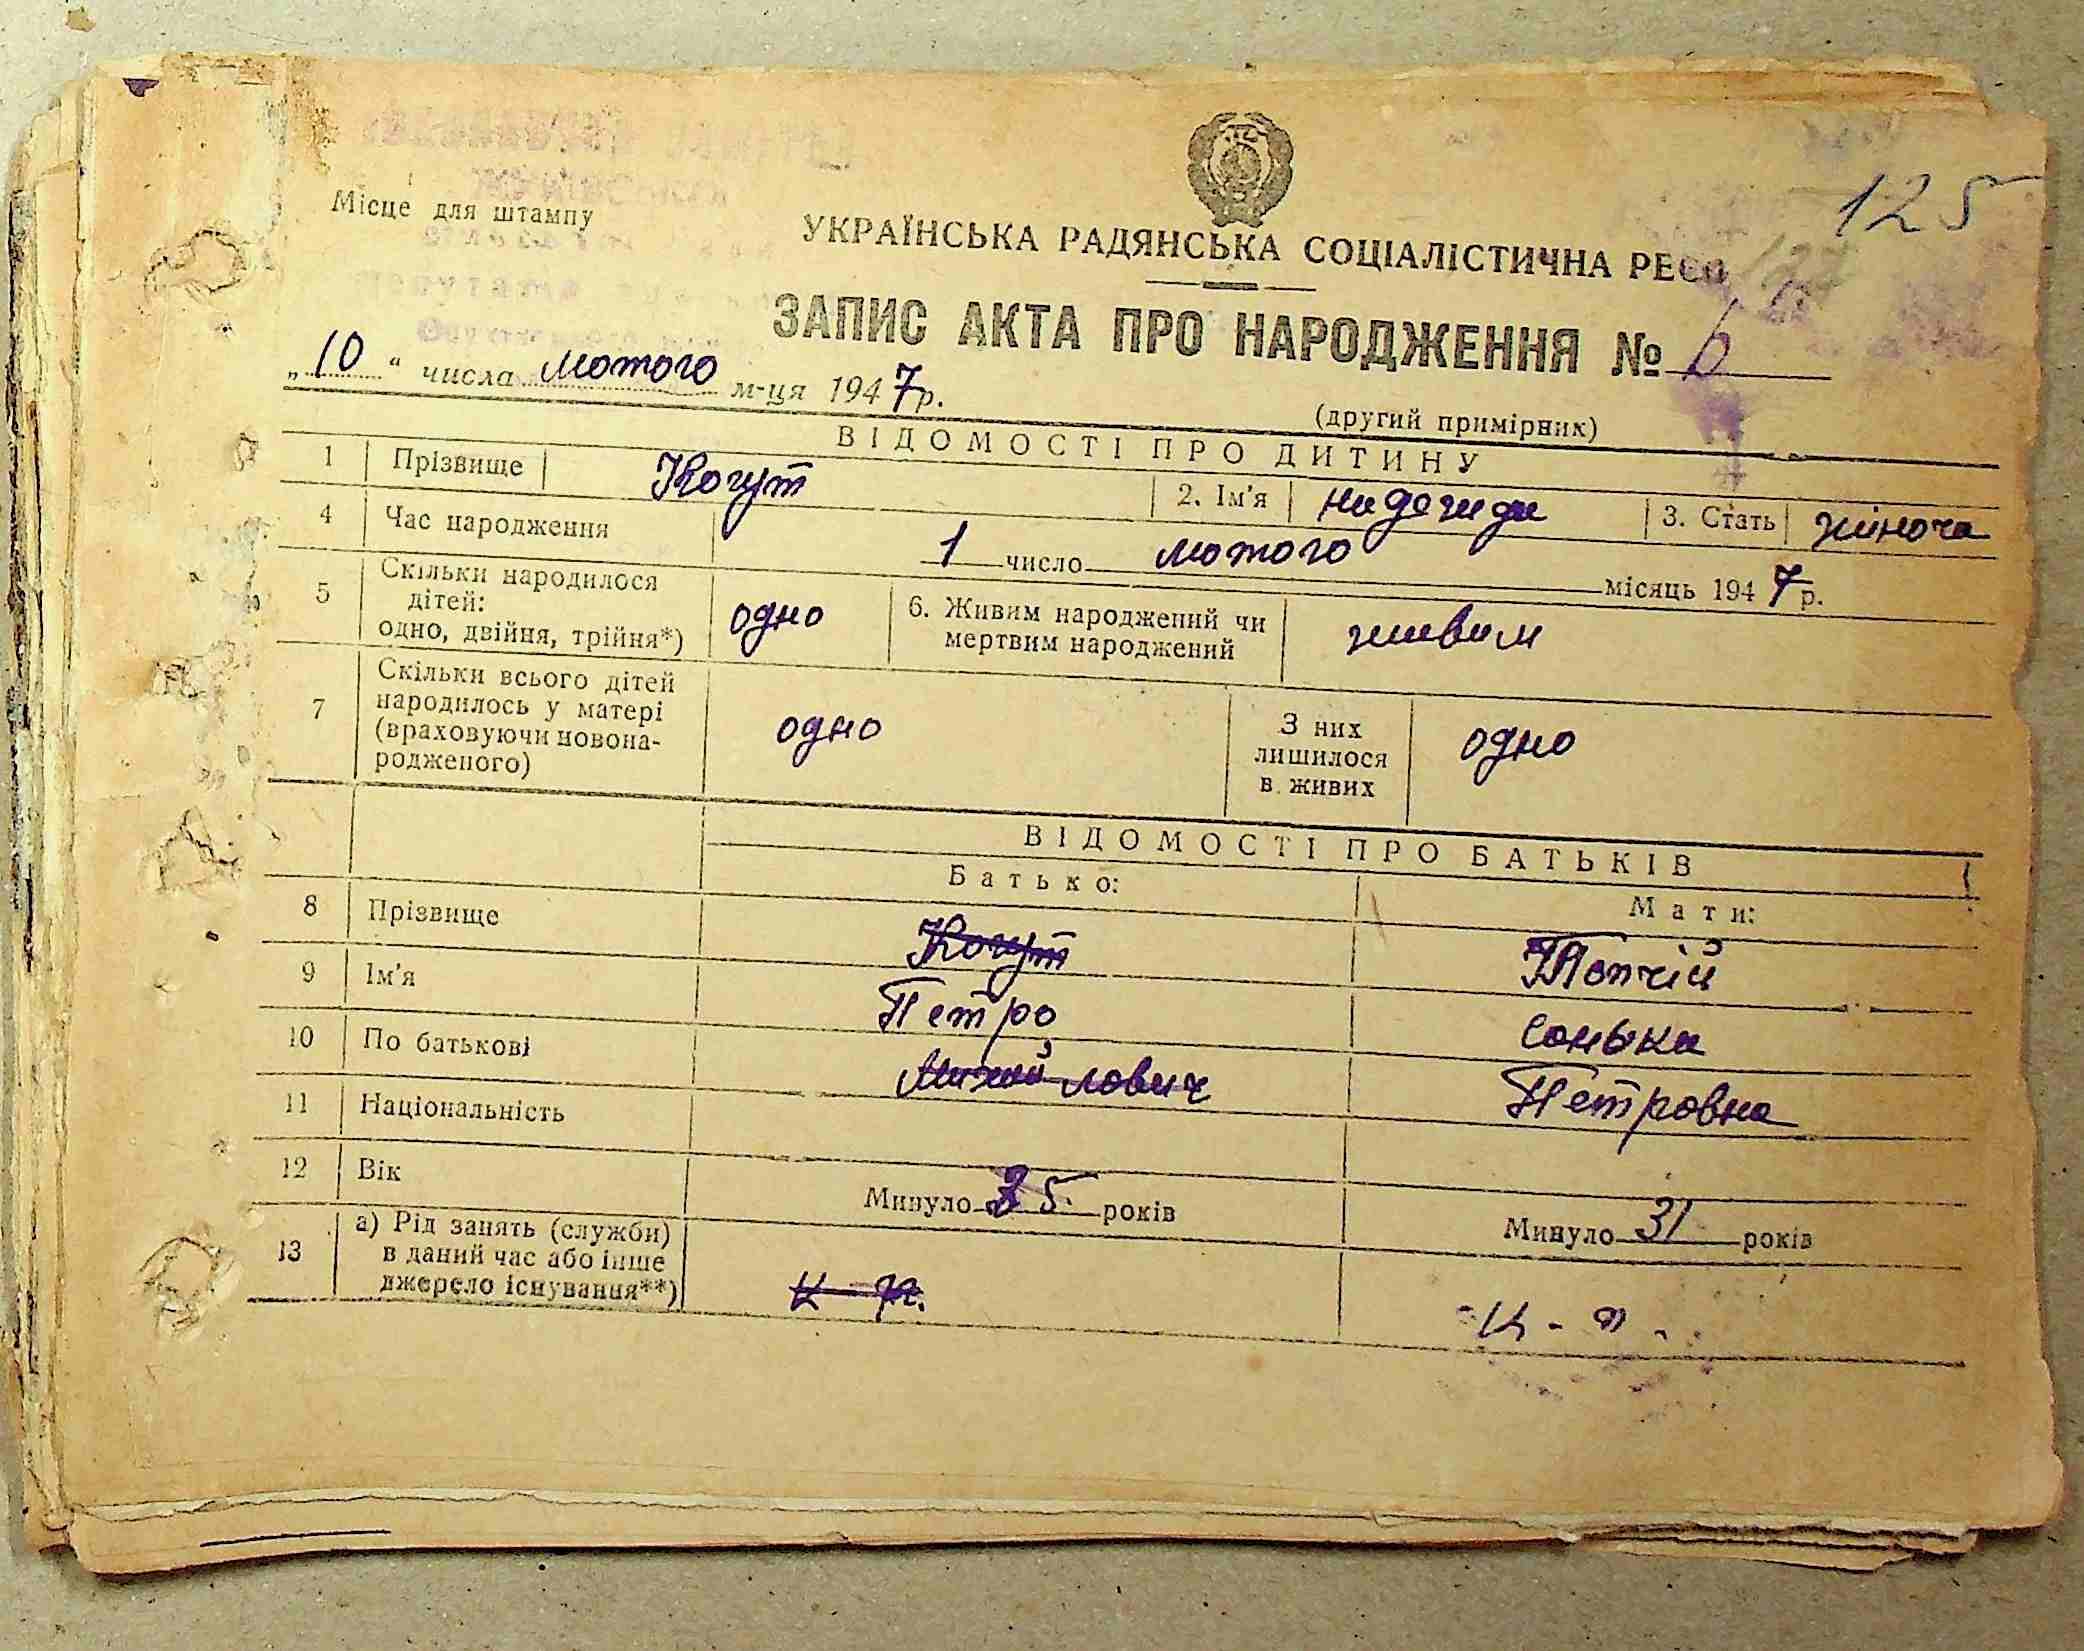 125
Місце для штампу
УКРАЇНСЬКА РАДЯНСЬКА СОЦІАЛІСТИЧНА РЕСП
ЗАПИС АКТА ПРО НАРОДЖЕННЯ № 6
„10“ числа лютого м-ця 1947р.
(другий примірник)
ВІДОМОСТІ ПРО ДИТИНУ
1 Прізвище Когут 2. Ім'я 3. Стать жіноча
4 Час народження 1 число лютого місяць 1947р.
5 Скільки народилося дітей: одно, двійня, трійня*) одно 6. Живим народжений чи мертвим народжений живим
7 Скільки всього дітей народилось у матері (враховуючи новона-родженого) одно З них лишилося в живих одно
ВІДОМОСТІ ПРО БАТЬКІВ
Батько: Мати:
8 Прізвище Когут Топчій
9 Ім'я Петро Сонька
10 По батькові Михайлович Петровна
11 Національність
12 Вік Минуло 35 років Минуло 31 років
13 а) Рід занять (служби) в даний час або інше джерело існування**) к-п. к-п.